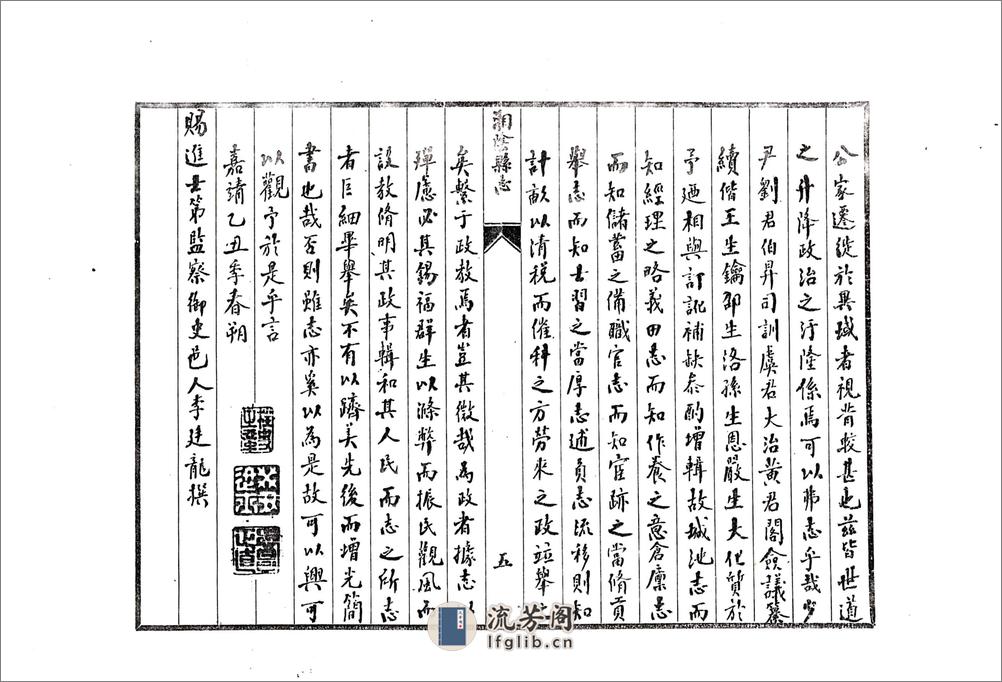 公家遷徙於異域者視昔較甚也茲皆世道
之升降政治之汙隆係焉可以弗志乎哉少
尹劉君伯昇司訓虞君大治黃君閣僉議纂
續偕王生鑰邵生洛孫生恩嚴生大化質於
予廼相與訂訛補缺叅酌增輯故城池志而
知經理之略義田志而知作養之意倉廩志
而知儲蓄之備職官志而知宦跡之當脩貢
舉志而知士習之當厚志逋負志流移則知
計畝以清稅而催科之方勞來之政竝舉
湘陰縣志
五
矣繫于政教焉者豈其微哉為政者據志以
殫慮必其錫福群生以滌弊而振民觀風而
設教脩明其政事輯和其人民而志之所志
者巨細畢舉矣不有以躋美先後而增光簡
書也哉否則雖志亦奚以為是故可以興可
以觀予於是乎言
嘉靖乙丑季春朔
賜進士第監察御史邑人李廷龍撰
流芳阁
lfglib.cn